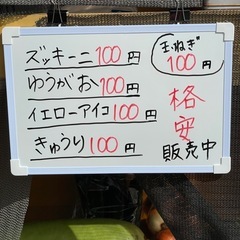 ズッキーニ100円
ゆうがお100円
イエローアイコ100円
きゅうり100円
玉ねぎ
100円
格安
販売中